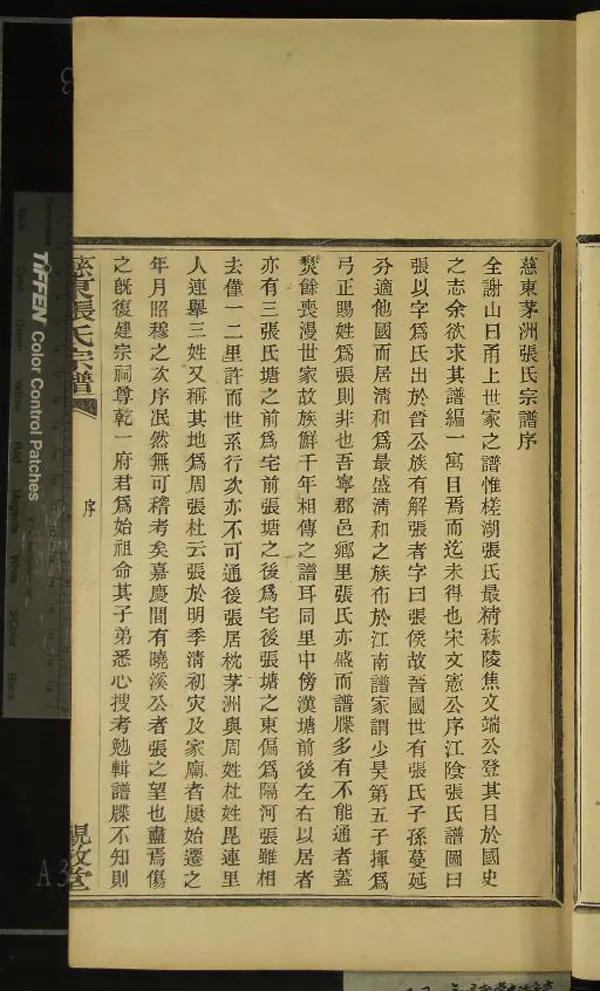 慈東茅洲張氏宗譜序
全謝山曰甬上世家之譜惟槎湖張氏最精秣陵焦文端公登其目於國史
之志余欲求其譜編一寓目焉而迄未得也宋文憲公序江陰張氏譜圖曰
張以字爲氏出於晉公族有解張者字曰張侯故晉國世有張氏子孫蔓延
分適他國而居淸和爲最盛淸和之族布於江南譜家謂少昊第五子揮爲
弓正賜姓爲張則非也吾寧郡邑鄉里張氏亦盛而譜牒多有不能通者蓋
燹餘喪漫世家故族鮮千年相傳之譜耳同里中傍漢塘前後左右以居者
亦有三張氏塘之前爲宅前張塘之後爲宅後張塘之東偏爲隔河張雖相
去僅一二里許而世系行次亦不可通後張居枕茅洲與周姓杜姓毘連里
人連舉三姓又稱其地爲周張杜云張於明季淸初灾及家廟者屢始遷之
年月昭穆之次序泯然無可稽考矣嘉慶間有曉溪公者張之望也盡焉傷
之旣復建宗祠尊乾一府君爲始祖命其子弟悉心搜考勉輯譜牒不知則
慈東張氏宗譜
序
TIFFEN Color Control Patches